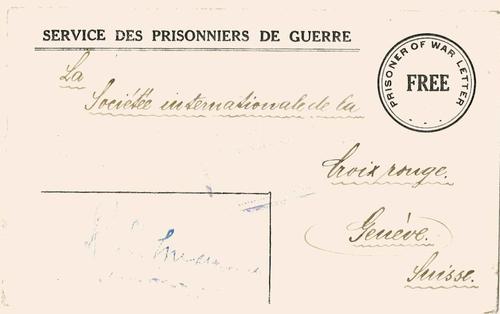 SERVICE DES PRISONNIERS DE GUERRE
PRISONER OF WAR LETTER
FREE
La
Société internationale de la
Croix rouge.
Genève.
Suisse.